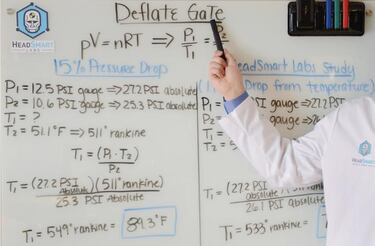 Deflate Gate
HEADSMART
LABS
pV = nRT ⇒ P₁/T₁ =
15% Pressure Drop
P₁ = 12.5 PSI gauge ⇒ 27.2 PSI absolute
P₂ = 10.6 PSI gauge ⇒ 25.3 PSI absolute
T₁ = ?
T₂ = 51.1°F ⇒ 511° rankine
T₁ = (P₁·T₂)/P₂
T₁ = (27.2 PSI Absolute)(511° rankine)/25.3 PSI Absolute
T₁ = 549° rankine = 89.3°F
HeadSmart Labs Study
Drop from temperature)
PSI gauge ⇒ 27.2
PSI gauge ⇒
T₁ =
T₂ =
T₁ = (27.2 PSI Absolute)(511° rankine)/26.1 PSI Absolute
T₁ = 533° rankine =
HEADSMART
LABS